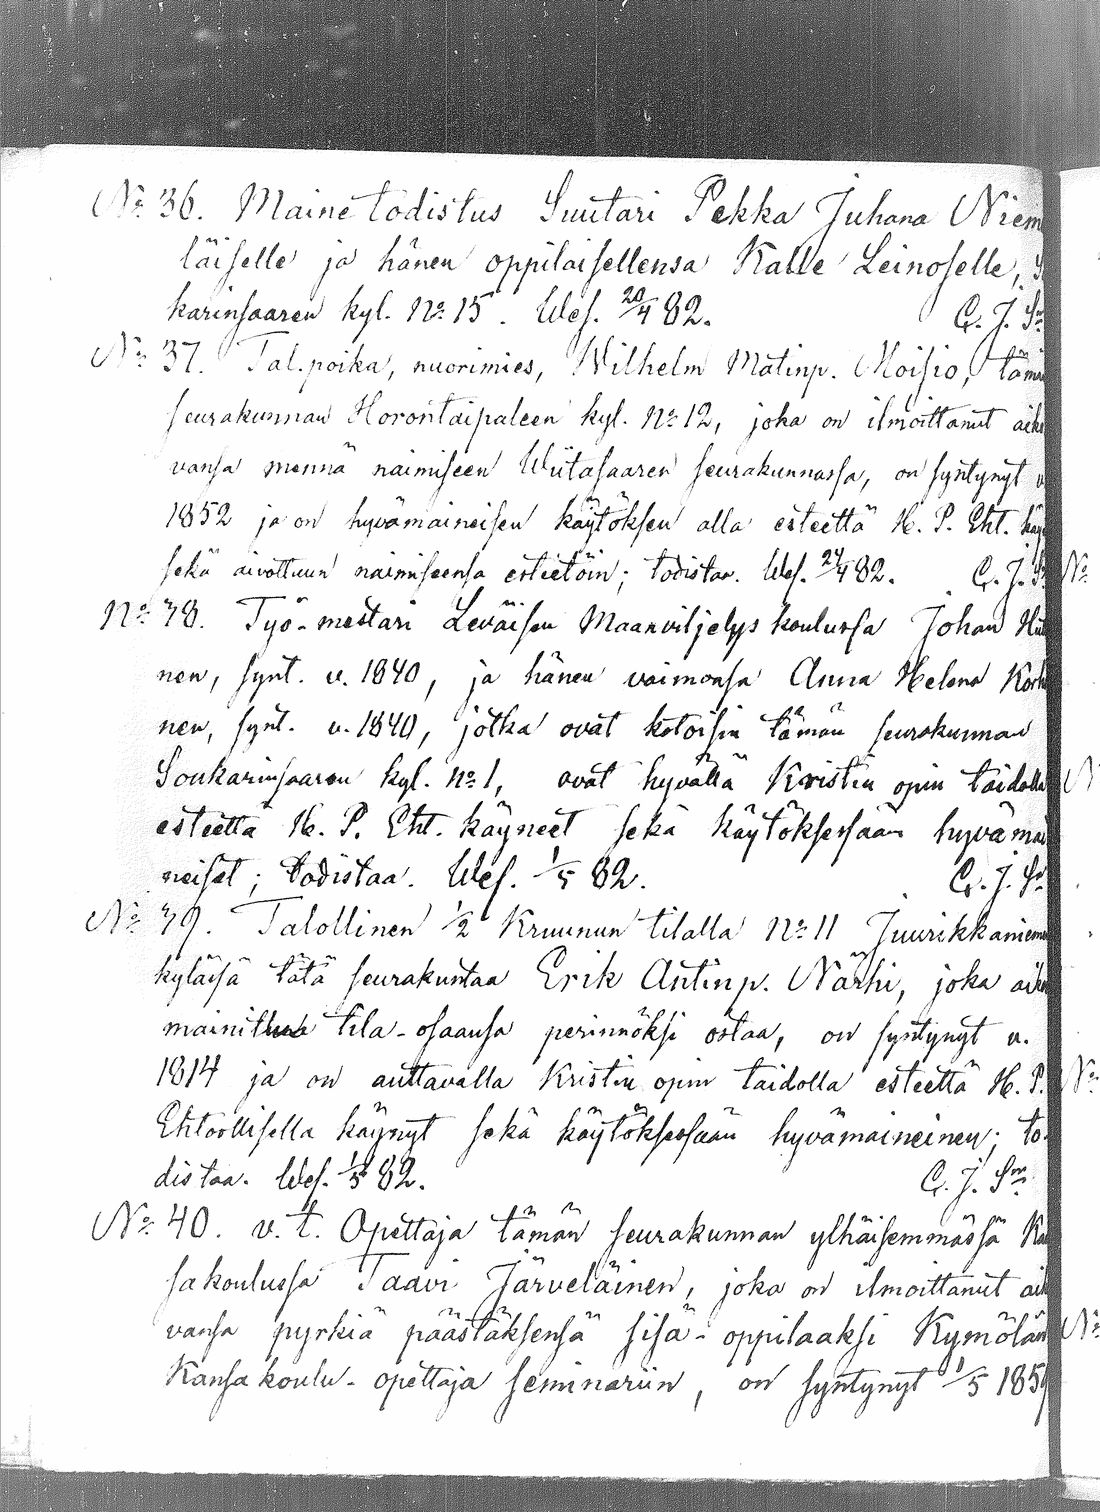 No 36. Mainetodistus Suutari Pekka Juhana Niem
läiselle ja hänen oppilaisellensa Kalle Leinoselle,
karinsaaren kyl. No 15. Wes. 20/4 82. C. J. Sn
No 37. Tal.poika, nuorimies, Wilhelm Matinp. Moisio, tämä
seurakunnan Horontaipaleen kyl. No 12, joka on ilmoittanut aiko
vansa mennä naimiseen Wiitasaaren seurakunnassa, on syntynyt v
1852 ja on hyvämaineisen käytöksen alla esteettä H. P. Eht. käy
sekä aivottuun naimiseensa esteetöin; todistaa. Wes. 24/4 82. C. J. Sn
No 38. Työ-mestari Leväisen Maanviljelys koulussa Johan
nen, synt. v. 1840, ja hänen vaimonsa Anna Helena Korho
nen, synt. v. 1840, jotka ovat kotoisin tämän seurakunnan
Soukarinsaaren kyl. No 1, ovat hyvällä Kristin opin taidolla
esteettä H. P. Eht. käyneet sekä käytöksessään hyvämai
neiset; todistaa. Wes. 1/5 82. C. J. Sn
No 39. Talollinen 1/2 Kruunun tilalla No 11 Juurikkaniemen
kyläsä tätä seurakuntaa Erik Antinp. Närhi, joka aiko
mainittua tila-osaansa perinnöksi ostaa, on syntynyt v.
1814 ja on auttavalla Kristin opin taidolla esteettä H. P.
Ehtoollisella käynyt sekä käytöksessään hyvämaineinen; to-
distaa. Wes. 1/5 82. C. J. Sn
No 40. v. t. Opettaja tämän seurakunnan ylhäisemmässä Kan
sakoulussa Taavi Järveläinen, joka on ilmoittanut aiko
vansa pyrkiä päästäksensä sisä-oppilaaksi Kymölän
Kansakoulu-opettaja seminariin, on syntynyt 1/5 185